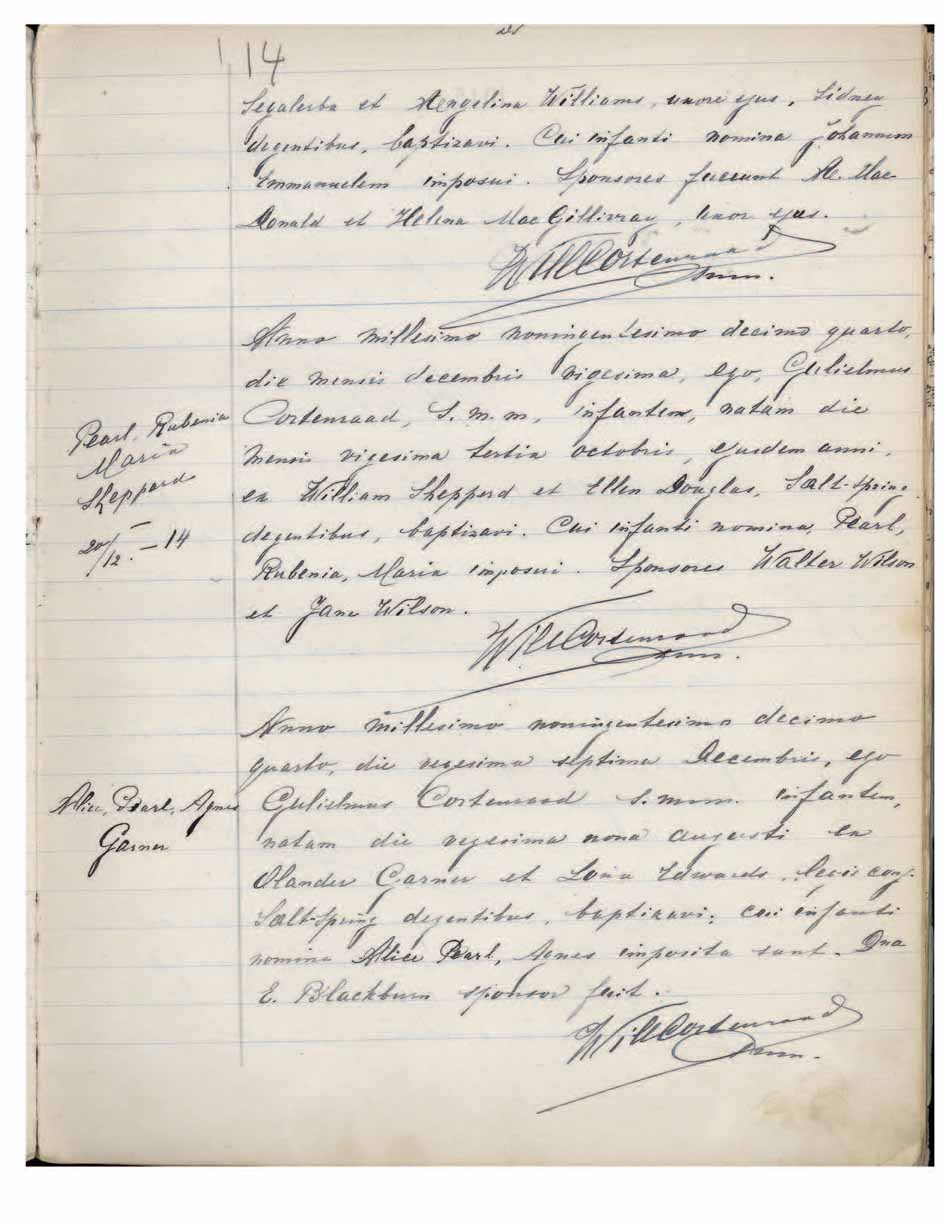 114
Segalerba et Aengelina Williams, uxore ejus, Sidney
degentibus, baptizavi. Cui infanti nomina Johannem
Emmanuelem imposui. Sponsores fuerunt Ae. Mac
Donald et Helena MacGillivray, uxor ejus.
Will Cortenraad
smm.
Anno millesimo noningentesimo decimo quarto,
die mensis decembris vigesima, ego, Gulielmus
Cortenraad, S.m.m, infantem, natam die
Pearl, Rubenia
Maria
Sheppard
20/12. – 14
mensis vigesima tertia octobris, ejusdem anni,
ex William Shepperd et Ellen Douglas, Salt-Spring
degentibus, baptizavi. Cui infanti nomina, Pearl,
Rubenia, Maria imposui. Sponsores Walter Wilson
et Jane Wilson.
Will Cortenraad
smm.
Anno millesimo noningentesimo decimo
quarto, die vegesima septima Decembris, ego
Alice, Pearl, Agnes
Garner
Gulielmus Cortenraad s.mm. infantem,
natam die vegesima nona augusti ex
Olander Garner et Lona Edwards, legit. conj.
Salt-Spring degentibus, baptizavi; cui infanti
nomina Alice Pearl, Agnes imposita sunt. Dna
E. Blackburn sponsor fuit.
Will Cortenraad
smm.